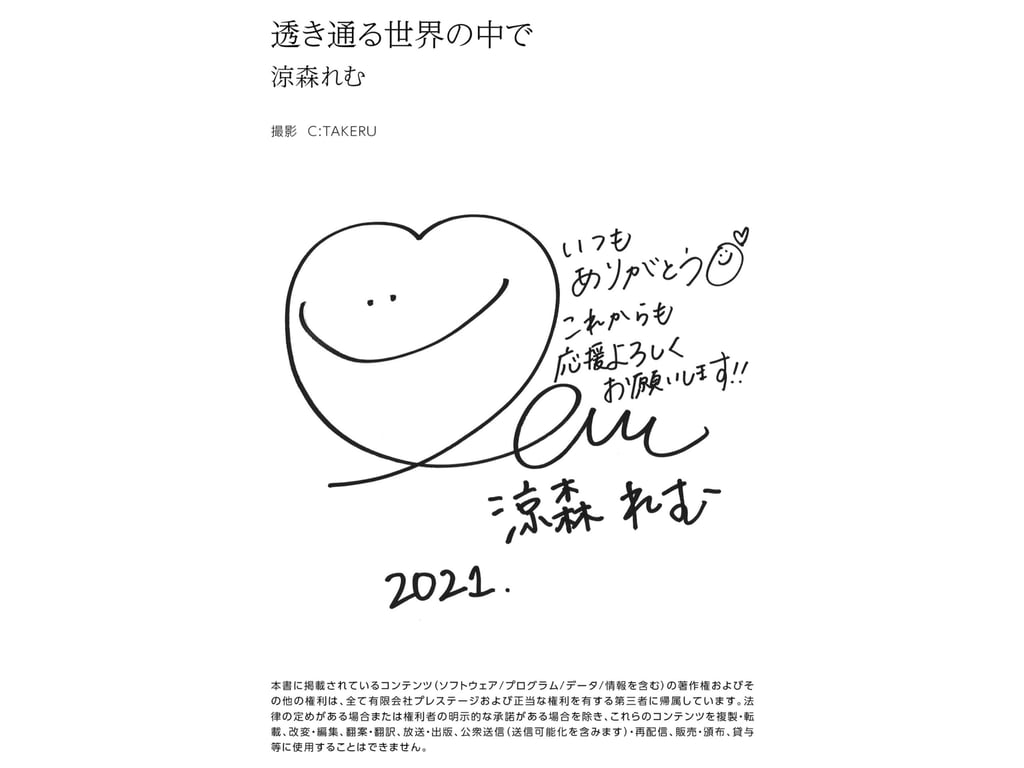 透き通る世界の中で
涼森れむ
撮影 C:TAKERU
いつも
ありがとう
これからも
応援よろしく
お願いします!!
涼森れむ
2021.
本書に掲載されているコンテンツ(ソフトウェア/プログラム/データ/情報を含む)の著作権およびそ
の他の権利は、全て有限会社プレステージおよび正当な権利を有する第三者に帰属しています。法
律の定めがある場合または権利者の明示的な承諾がある場合を除き、これらのコンテンツを複製・転
載、改変・編集、翻案・翻訳、放送・出版、公衆送信(送信可能化を含みます)・再配信、販売・頒布、貸与
等に使用することはできません。